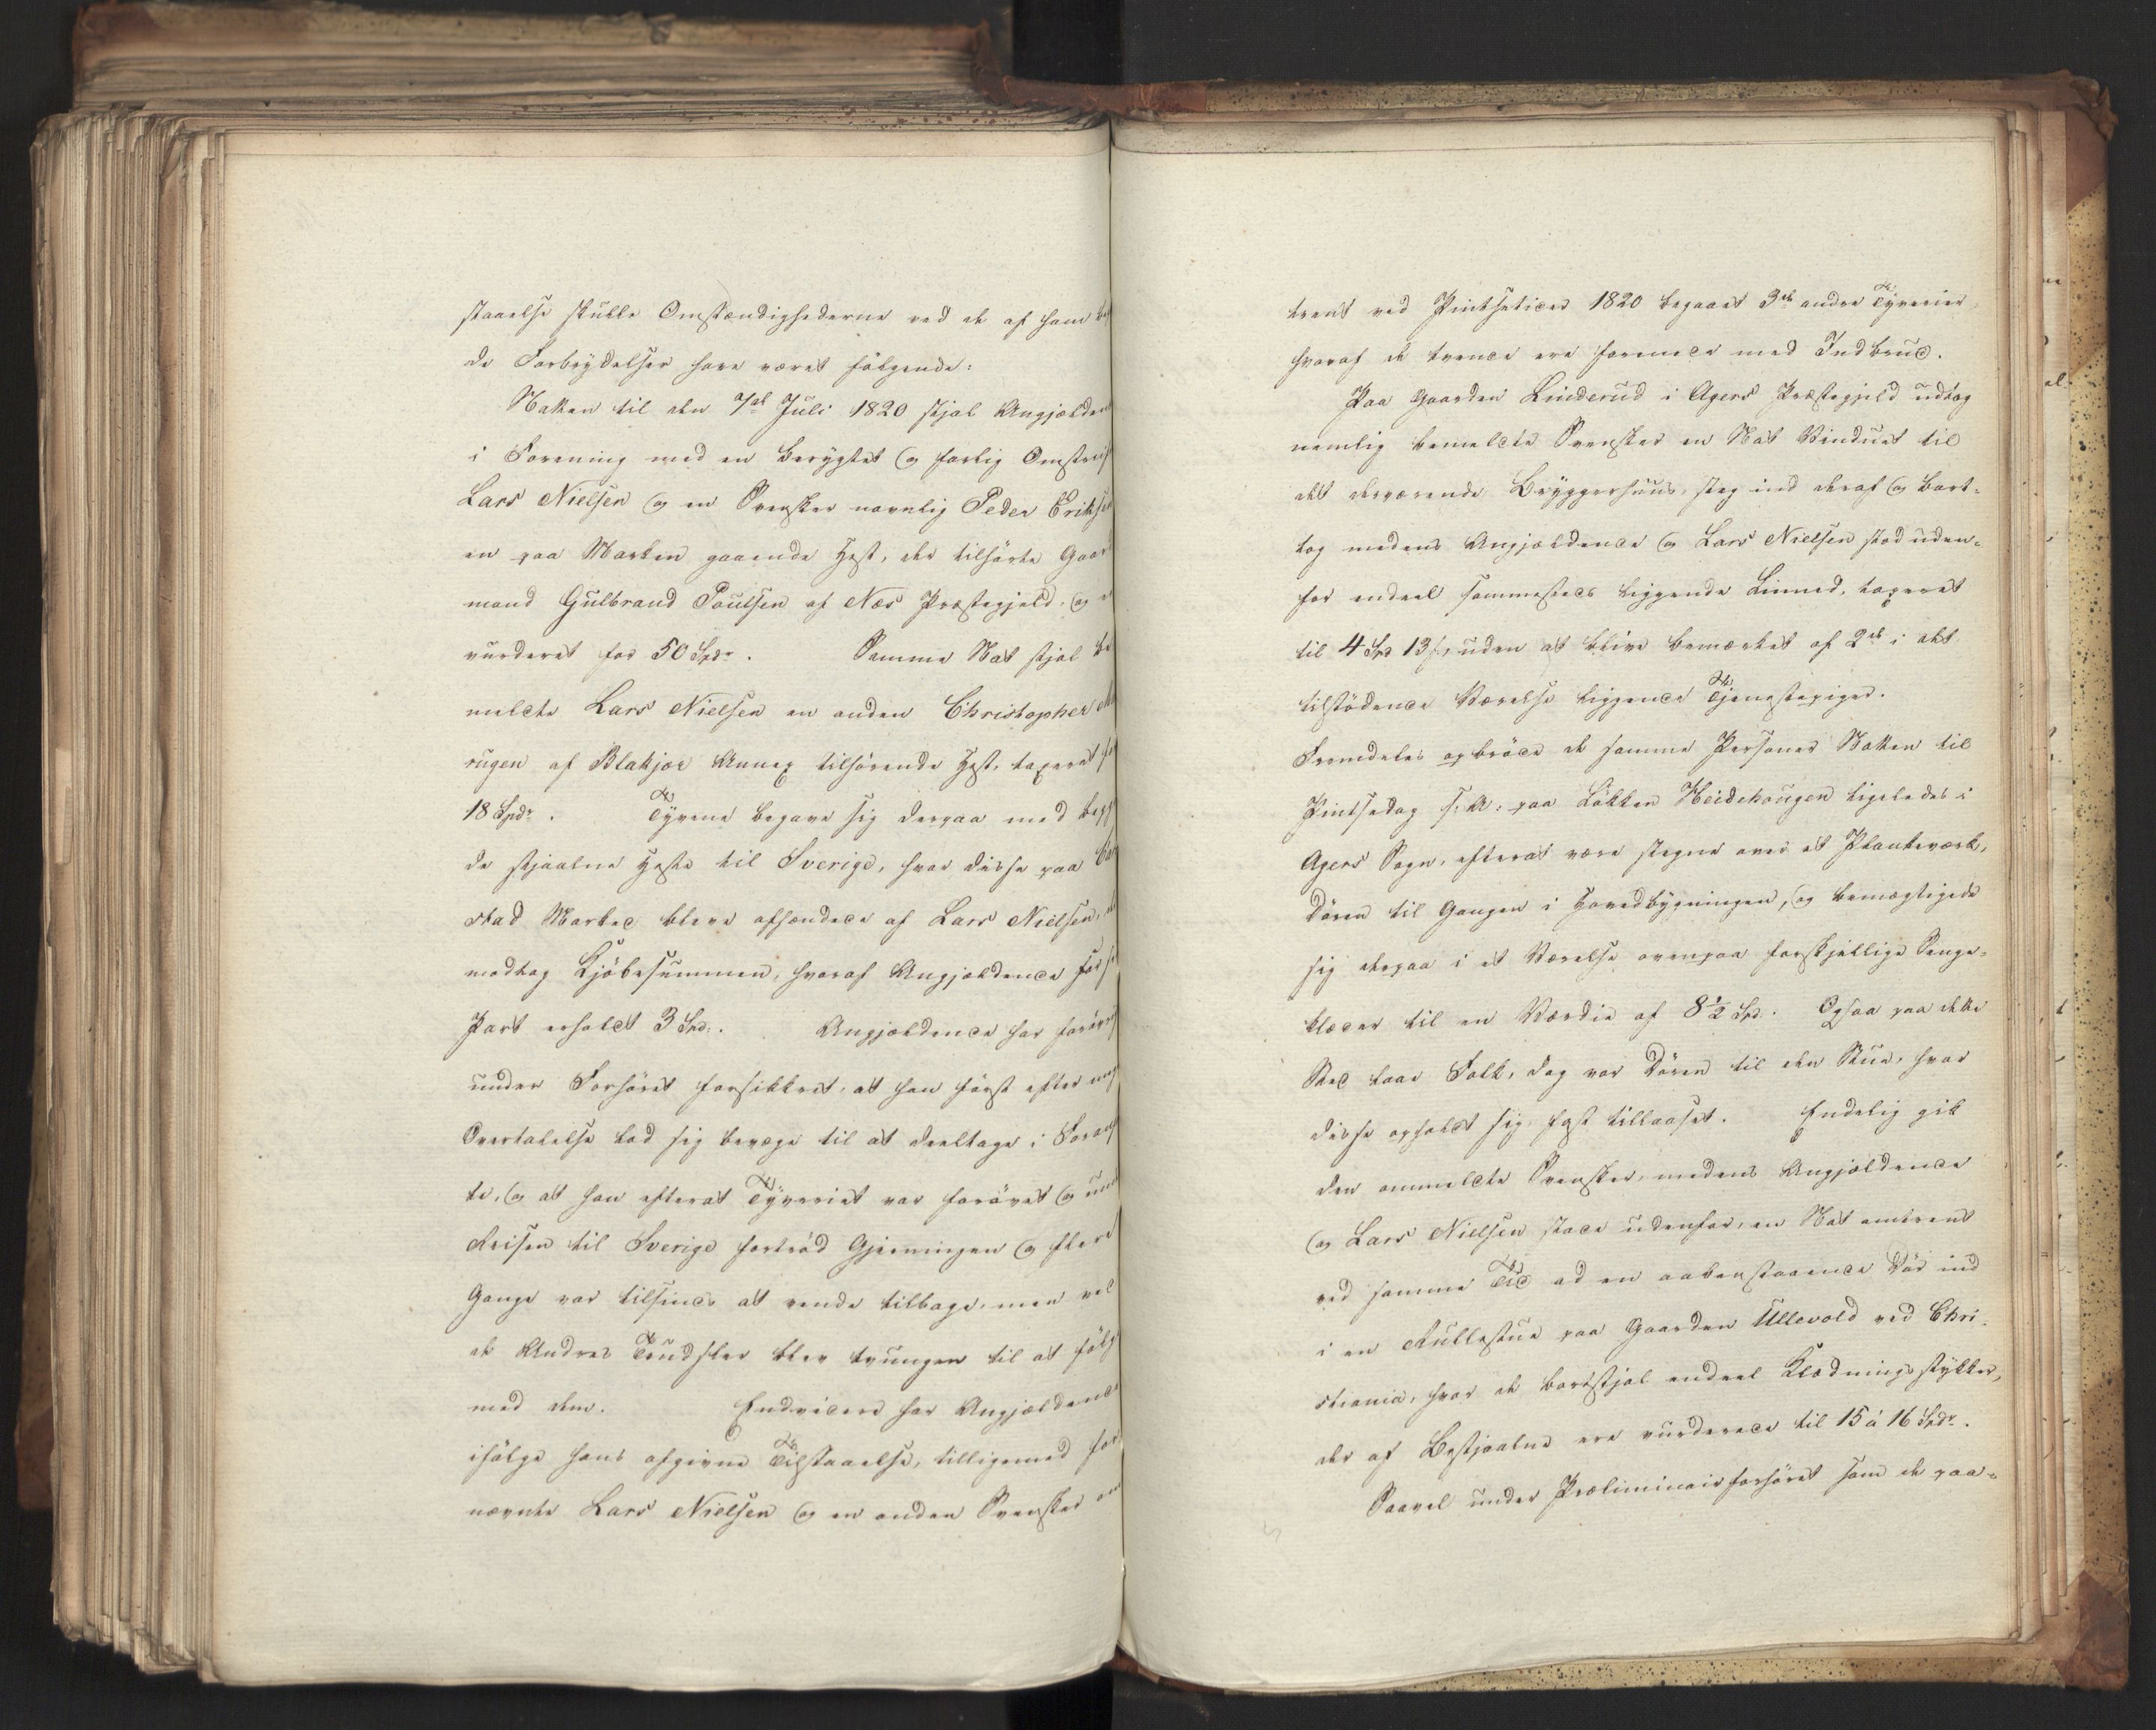 staaelse skulle Omstændighederne ved de af ham
de Forbrydelser have været følgende:
Natten til den 7de Juli 1820 stjal Angjælden
i Forening med en berygtet og farlig Omstreif
Lars Nielsen og en Svensker navnlig Peder Eriksen
en paa Marken gaaende Hest, der tilhørte Gaard
mand Gulbrand Poulsen af Næs Præstegjeld, og
vurderet for 50 Spdr. Samme Nat stjal be
meldte Lars Nielsen en anden Christopher
rugen af Blakjær Annex tilhørende Hest, taxeret
18 Spdr. Tyvene begave sig derpaa med begge
de stjaalne Heste til Sverige, hvor disse paa
stad Marked bleve afhændede af Lars Nielsen,
modtog Kjøbesummen, hvoraf Angjældende for sin
Part erholdt 3 Spd. Angjældende har forøvrigt
under Forhøret forsikkret, at han først efter
Overtalelse lod sig bevæge til at deeltage i
te, og at han efterat Tyveriet var forøvet og und
Reisen til Sverige fortrød Gjerningen og flere
Gange var tilsinds at vende tilbage, men ved
de Andres Trudsler blev tvungen til at følge
med dem. Endvidere har Angjældende
ifølge hans afgivne Tilstaaelse, tilligemed for
nævnte Lars Nielsen og en anden Svensker om
trent ved Pintsetider 1820 begaaet 3de andre Tyverier
hvoraf de tvende ere forenede med Indbrud.
Paa Gaarden Linderud i Agers Præstegjeld udtog
nemlig bemeldte Svensker en Nat Vinduet til
det derværende Bryggerhuus, steg ind deraf og bort-
tog medens Angjældende og Lars Nielsen stod uden-
for endeel sammesteds liggende Linned, taxeret
til 4 Spd 13 s, uden at blive bemærket af 2de i det
tilstødende Værelse liggende Tjenestepiger.
Fremdeles opbrøde de samme Personer Natten til
Pintsedag s: A: paa Løkken Heidehougen ligeledes i
Agers Sogn, efterat være stegne over et Plankeværk,
Døren til Gangen i Hovedbygningen, og bemægtigede
sig derpaa i et Værelse ovenpaa forskjellige Senge-
klæder til en Værdie af 8½ Spd. Ogsaa paa dette
Sted laae Folk, dog var Døren til den Stue, hvor
disse opholdt sig, fast tillaaset. Endelig gik
den ommeldte Svensker, medens Angjældende
og Lars Nielsen stode udenfor, en Nat omtrent
ved samme Tid ad en aabenstaaende Dør ind
i en Rullestue paa Gaarden Ullevold ved Chri-
stiania, hvor de bortstjal endeel Klædningsstykker,
der af Bestjaalne ere vurderede til 15 á 16 Spdr.
Saavel under Præliminairforhøret som de paa-